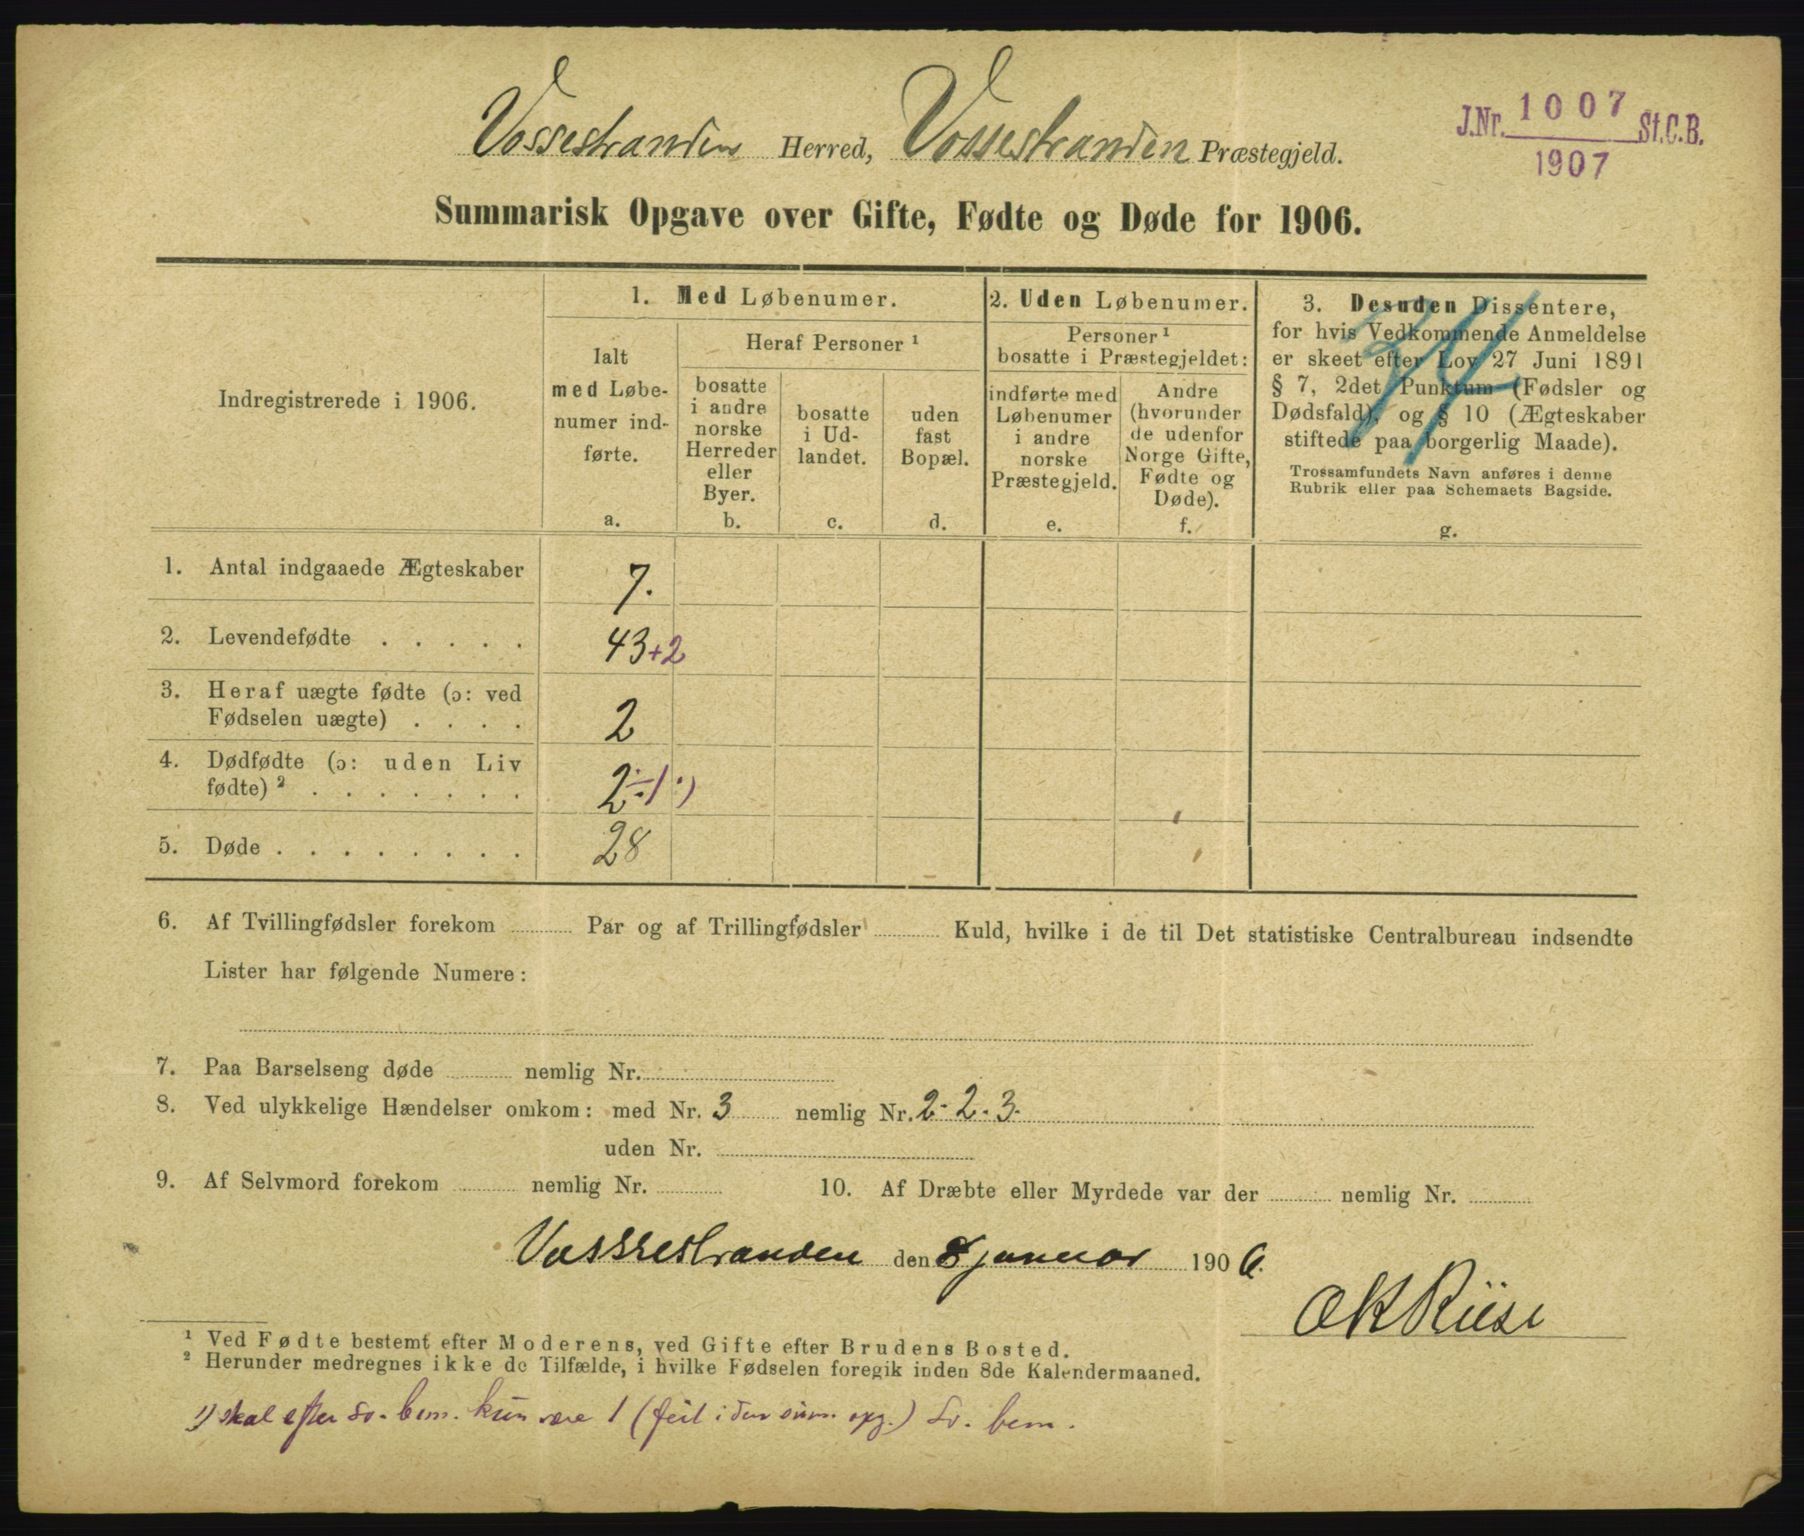 Vossestranden Herred, Vossestranden Præstegjeld.
J.Nr. 1007 St.C.B.
1907
Summarisk Opgave over Gifte, Fødte og Døde for 1906.
Indregistrerede i 1906.
1. Med Løbenumer.
Ialt
med Løbe-
numer ind-
førte.
a.
Heraf Personer ¹
bosatte
i andre
norske
Herreder
eller
Byer.
b.
bosatte
i Ud-
landet.
c.
uden
fast
Bopæl.
d.
2. Uden Løbenumer.
Personer ¹
bosatte i Præstegjeldet:
indførte med
Løbenumer
i andre
norske
Præstegjeld.
e.
Andre
(hvorunder
de udenfor
Norge Gifte,
Fødte og
Døde).
f.
3. Desuden Dissentere,
for hvis Vedkommende Anmeldelse
er skeet efter Lov 27 Juni 1891
§ 7, 2det Punktum (Fødsler og
Dødsfald), og § 10 (Ægteskaber
stiftede paa borgerlig Maade).
Trossamfundets Navn anføres i denne
Rubrik eller paa Schemaets Bagside.
g.
1. Antal indgaaede Ægteskaber 7.
2. Levendefødte . . . . . 43+2
3. Heraf uægte fødte (ɔ: ved
Fødselen uægte) . . . . 2
4. Dødfødte (ɔ: uden Liv
fødte) ² . . . . . . . 2÷1 ¹)
5. Døde . . . . . . . . 28
6. Af Tvillingfødsler forekom Par og af Trillingfødsler Kuld, hvilke i de til Det statistiske Centralbureau indsendte
Lister har følgende Numere:
7. Paa Barselseng døde nemlig Nr.
8. Ved ulykkelige Hændelser omkom: med Nr. 3 nemlig Nr. 2-2-3-
uden Nr.
9. Af Selvmord forekom nemlig Nr. 10. Af Dræbte eller Myrdede var der nemlig Nr.
Vossestranden den 8 januar 1906.
OK Riise
¹ Ved Fødte bestemt efter Moderens, ved Gifte efter Brudens Bosted.
² Herunder medregnes ikke de Tilfælde, i hvilke Fødselen foregik inden 8de Kalendermaaned.
1) skal efter Sv. bem. kun være 1 (feil i den sum. opg.) Sv. bem.